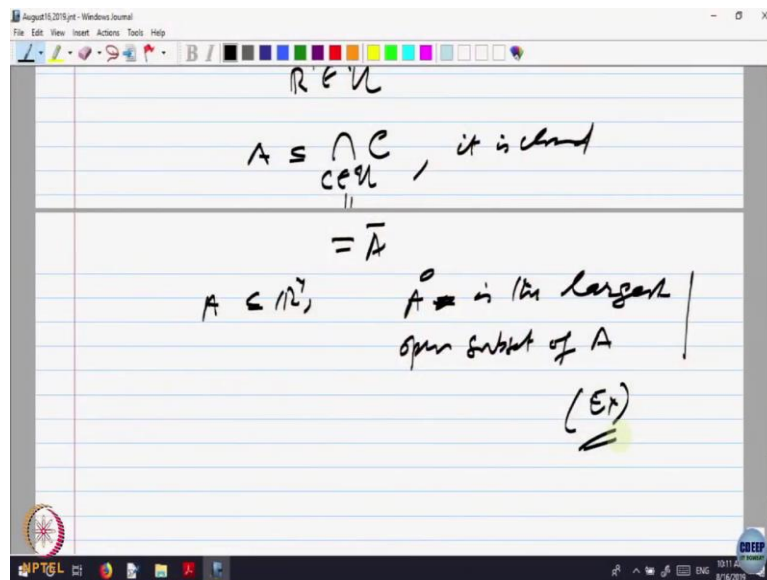 August16,2019.jnt - Windows Journal
File Edit View Insert Actions Tools Help
B I
ℝⁿ ∈ 𝒰
A ⊆ ⋂ C , it is closed
C∈𝒰
||
= Ā
A ⊆ ℝⁿ, A° is the largest
open subset of A
(Ex)
NPTEL
CDEEP
IIT BOMBAY
ENG
10:11 A
8/16/2019